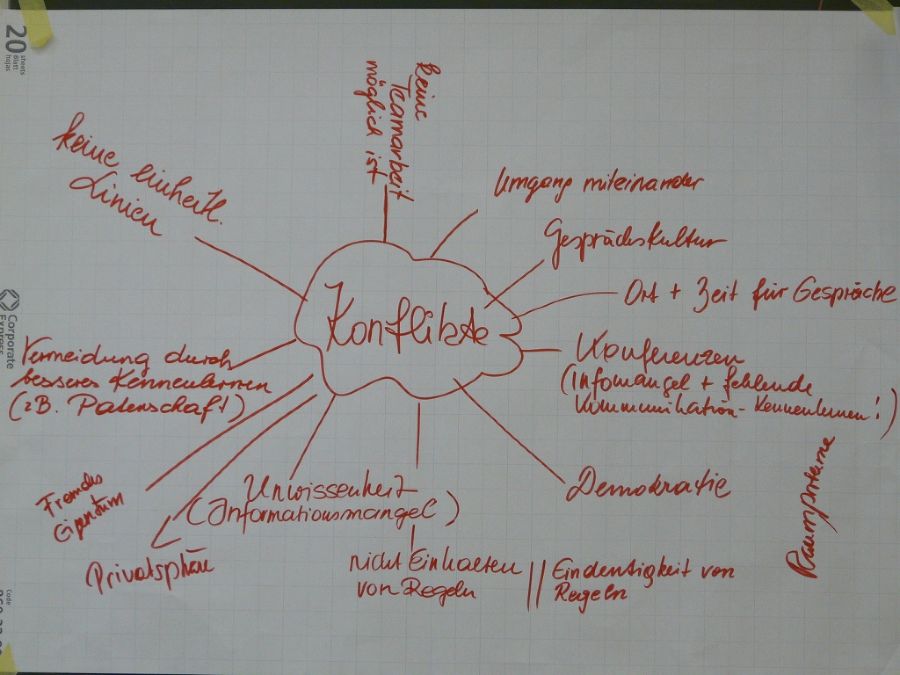 20
sheets
Blatt
hojas
keine
Teamarbeit
möglich ist
keine einheitl.
Linien
Umgang miteinander
Gesprächskultur
Ort + Zeit für Gespräche
Konflikte
Corporate
Express
Vermeidung durch
besseres Kennenlernen
(zB. Patenschaft)
Konferenzen
(Infomangel + fehlende
Kommunikation - Kennenlernen!)
Fremdes
Eigentum
Privatsphäre
Unwissenheit
(Informationsmangel)
Demokratie
nicht Einhalten
von Regeln
|| Eindeutigkeit von
Regeln
Code